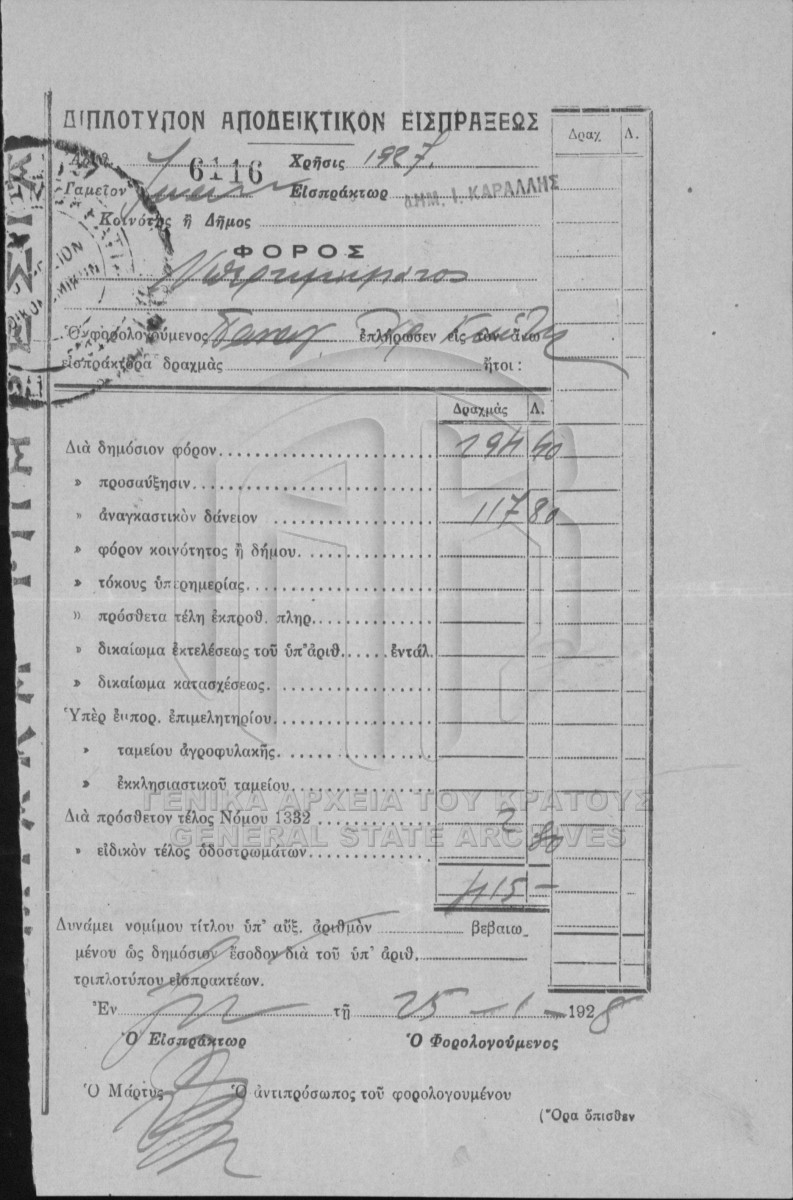 ΔΙΠΛΟΤΥΠΟΝ ΑΠΟΔΕΙΚΤΙΚΟΝ ΕΙΣΠΡΑΞΕΩΣ
Δραχ. Λ.
Ἀριθ. 6116 Χρῆσις 1927
Ταμεῖον Εἰσπράκτωρ ΔΗΜ. Ι. ΚΑΡΑΛΛΗΣ
Κοινότης ἢ Δῆμος
ΦΟΡΟΣ
Ὁ φορολογούμενος ἐπλήρωσεν εἰς τὸν ἄνω
εἰσπράκτορα δραχμὰς ἤτοι :
Δραχμὰς Λ.
Διὰ δημόσιον φόρον 294 40
» προσαύξησιν
» ἀναγκαστικὸν δάνειον 117 80
» φόρον κοινότητος ἢ δήμου.
» τόκους ὑπερημερίας.
» πρόσθετα τέλη ἐκπροθ. πληρ.
» δικαίωμα ἐκτελέσεως τοῦ ὑπ' ἀριθ. ἐντάλ.
» δικαίωμα κατασχέσεως.
Ὑπὲρ ἐμπορ. ἐπιμελητηρίου.
» ταμείου ἀγροφυλακῆς.
» ἐκκλησιαστικοῦ ταμείου.
ΓΕΝΙΚΑ ΑΡΧΕΙΑ ΤΟΥ ΚΡΑΤΟΥΣ
Διὰ πρόσθετον τέλος Νόμου 1332 2 80
GENERAL STATE ARCHIVES
» εἰδικὸν τέλος ὁδοστρωμάτων
415 –
Δυνάμει νομίμου τίτλου ὑπ' αὔξ. ἀριθμὸν βεβαιω
μένου ὡς δημόσιον ἔσοδον διὰ τοῦ ὑπ' ἀριθ.
τριπλοτύπου εἰσπρακτέων.
Ἐν τῇ 25 – 1 – 1928
Ὁ Εἰσπράκτωρ Ὁ Φορολογούμενος
Ὁ Μάρτυς Ὁ ἀντιπρόσωπος τοῦ φορολογουμένου
(Ὅρα ὄπισθεν